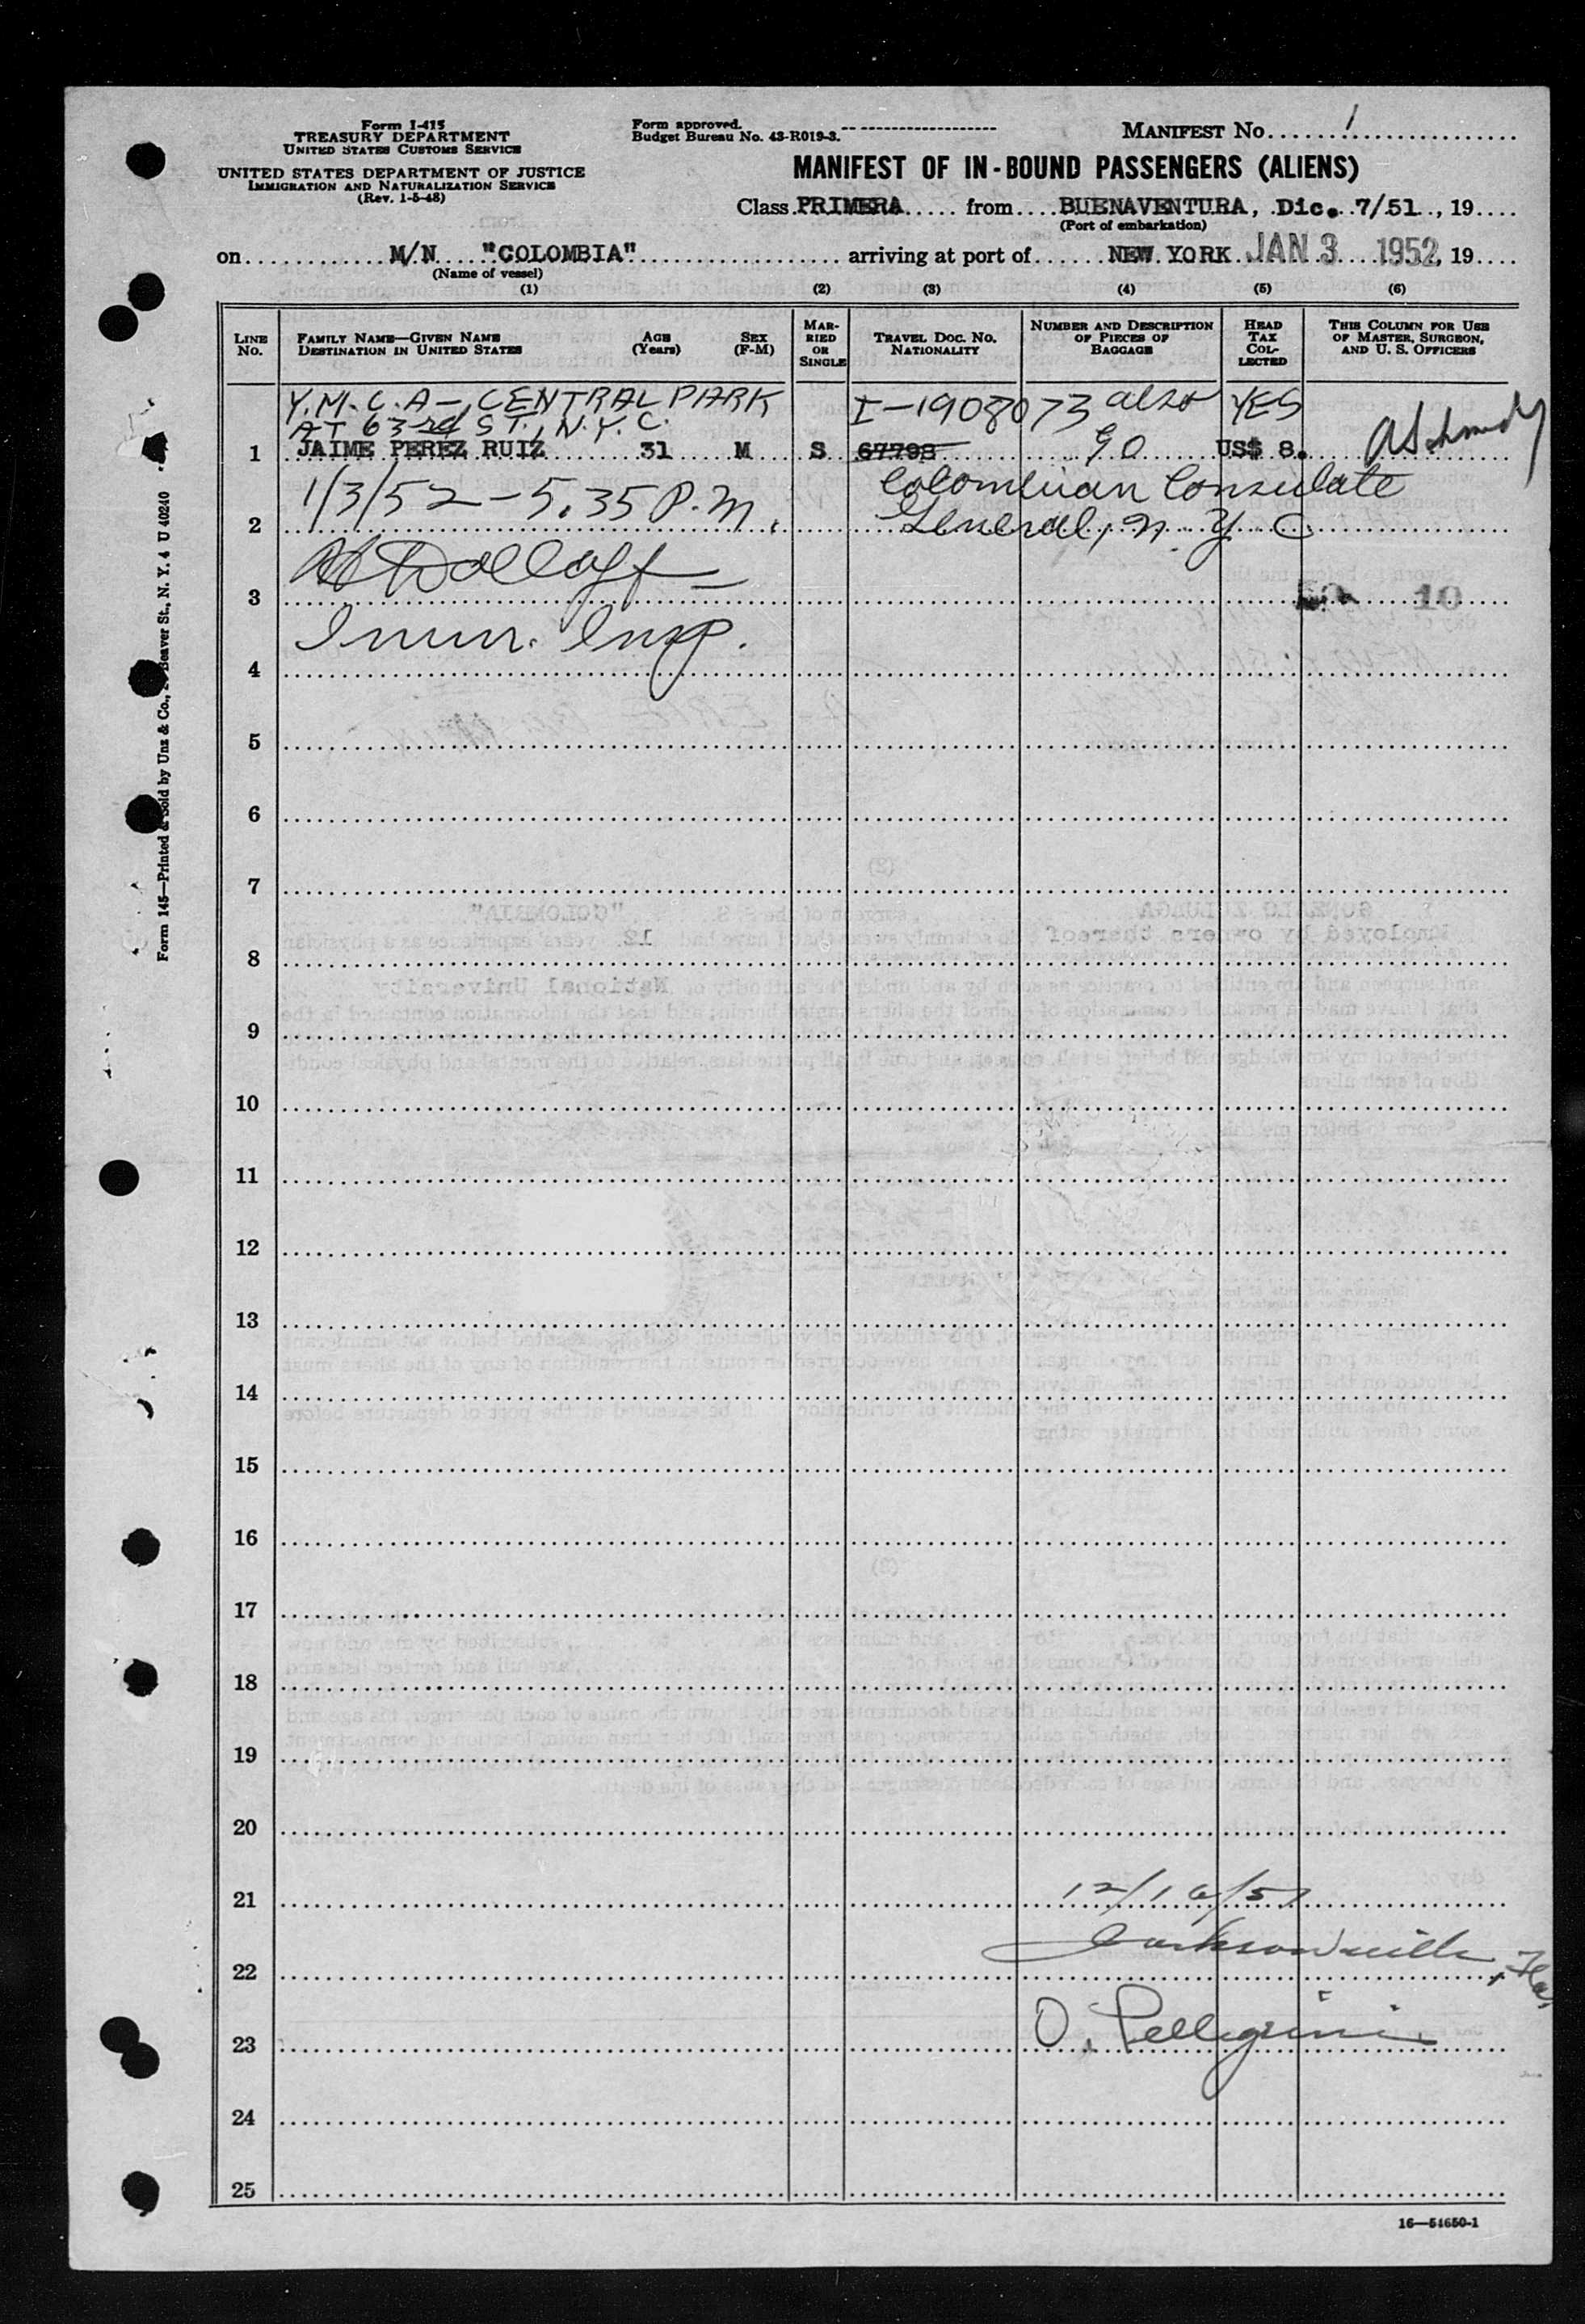 Form I-415
TREASURY DEPARTMENT
UNITED STATES CUSTOMS SERVICE
UNITED STATES DEPARTMENT OF JUSTICE
IMMIGRATION AND NATURALIZATION SERVICE
(Rev. 1-5-48)
Form approved.
Budget Bureau No. 43-R019-3.
MANIFEST NO. 1
MANIFEST OF IN-BOUND PASSENGERS (ALIENS)
Class PRIMERA from BUENAVENTURA, Dic. 7/51, 19
(Port of embarkation)
on M/N "COLOMBIA" arriving at port of NEW YORK JAN 3 1952, 19
(Name of vessel)
(1) (2) (3) (4) (5) (6)
LINE NO.
FAMILY NAME—GIVEN NAME
DESTINATION IN UNITED STATES
AGE (Years)
SEX (F-M)
MARRIED OR SINGLE
TRAVEL DOC. NO. NATIONALITY
NUMBER AND DESCRIPTION OF PIECES OF BAGGAGE
HEAD TAX COLLECTED
THIS COLUMN FOR USE OF MASTER, SURGEON, AND U. S. OFFICERS
Y.M.C.A - CENTRAL PARK I-1908073 also YES
AT 63rd ST., N.Y.C.
1 JAIME PEREZ RUIZ 31 M S 67798 90 US$ 8.
1/3/52 - 5.35 P.M. Colombian Consulate
2 General, N.Y.C
3 10
Imm. Insp.
4
5
6
7
8
9
10
11
12
13
14
15
16
17
18
19
20
21
Jacksonville, Fla.
22
O. Pellegrini
23
24
25
16—54650-1
Form 145—Printed & Sold by Unz & Co., Beaver St., N. Y. 4 U 40240